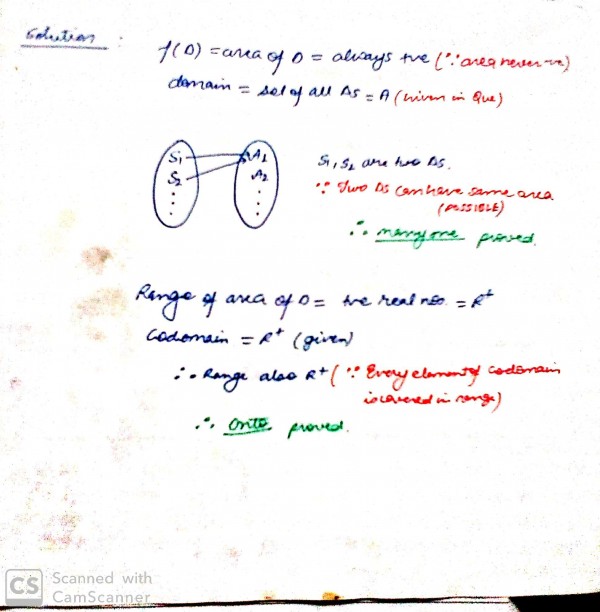 Solution :
f(Δ) = area of Δ = always +ve (∵ area never -ve)
domain = set of all Δs = A (given in Que)
S1 A1
S2 A2
S1, S2 are two Δs.
∵ Two Δs can have same area
(POSSIBLE)
∴ many one proved.
Range of area of Δ = +ve real nos. = R+
Codomain = R+ (given)
∴ Range also R+ (∵ Every element of codomain
is covered in range)
∴ Onto proved.
CS Scanned with
CamScanner